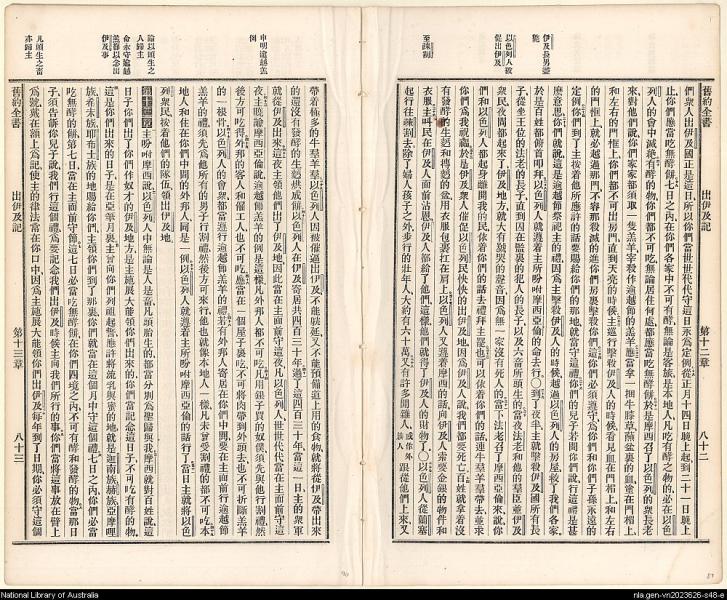 伊及長男斃
以色列人被
促出伊及
至疎割
舊約全書 出伊及記 第十二章 八十二
們衆人出伊及國正是這日所以你們當世世代代守這日永爲定例從正月十四日晚上起到二十一日晚上
止你們應當吃無酵餅七日之內在你們各家中不可有酵無論是客旅是本地人凡吃有酵之物的必在以色
列人的會中滅絕有酵的物你們都不可吃無論居住何處都應當吃無酵餅於是摩西召了以色列的衆長老
來對他們說你們家家都須取一隻羔羊宰殺作逾越節的羔羊應當拿一捆牛膝草蘸盆裏的血塗在門楣上
和左右的門框上你們都不可出房門直到天亮的時候主巡行擊殺伊及人的時候看見血在門楣上和左右
的門框上就必越過那門不容那殺滅的進你們房裏擊殺你們這例你們必須遵守爲你們和你們子孫永遠的
定例你們到了主按着他所應許的話要賜給你們的那地就當守這禮你們的兒子若問你們說行這禮是甚
麽意思你們就說這是逾越節祭祀主的當主擊殺伊及人的時候越過以色列人的房屋救了我們各家
於是百姓都俯首叩拜以色列人就遵着主所吩咐摩西亞倫的命去行○到了夜半主就擊殺伊及國所有長
子從坐王位的法老的長子直到囚在監裏的犯人的長子以及六畜所頭生的當夜法老和他的羣臣並伊及
衆民夜間都起來了伊及地方就大有號哭的聲音因爲無一家沒有死人的當下法老召了摩西亞倫來說你
們和以色列人都起身離開我的民依着你們的話去禮拜主罷也可以依着你們的話連牛羣羊羣帶去並求
你們爲我祝福於是伊及衆人催促以色列民快快的出伊及地因爲伊及人說我們都要死亡百姓就拿着沒
有發酵的生麪和摶麪的盆用衣服包裹扛在肩上以色列人又遵着摩西的話向伊及人索要金銀的物件和
衣服主叫民在伊及人面前沾恩伊及人都給了他們這樣他們就得了伊及人的財物了○以色列人從蘭塞
起行往疎割去除了婦人孩子之外步行的壯年人大約有六十萬又有許多閒雜人跟從他們上來又
申明逾越羔
例
諭以頭生之
人歸主
命永守逾越
節以念出
伊及事
凡頭生之畜
亦歸主
帶着極多的牛羣羊羣以色列人因被催逼出伊及不能躭延又不能預備道上用的食物就將從伊及帶出來
的還沒有發酵的生麪烘成餅以色列人在伊及寄居共四百三十年滿了這四百三十年當這一日主的衆軍
就從伊及出來這夜主領他們出了伊及地因此當在主面前守這夜凡以色列人世世代代當在主面前守這
夜主曉諭摩西亞倫說逾越節羔羊的例是這樣凡外邦人都不可吃凡用銀子買的奴僕須先與他行割禮然
後方可吃得外邦的客人和傭工人也不可吃應當在一個屋子裏吃不可將肉帶到外頭去也不可折斷羔羊
的一根骨以色列人的會衆都當遵行逾越節羔羊的禮若有外邦人寄居在你們中間要在主面前行逾越節
羔羊的禮須先爲他所有的男子行割禮然後方可來行他也就像本地人一樣凡未曾受割禮的都不可吃本
地人和住在你們中間的外邦人同是一例以色列人就遵着主所吩咐摩西亞倫的話行了當日主就將以色
列衆民按着他們的隊伍領出伊及地
第十三章 主吩咐摩西說以色列人中無論是人是畜凡頭胎生的都當分別爲聖歸與我摩西就對百姓說這
日子你們出了你們作奴才的伊及地方是主施展大能領你們出來的你們當記念這日子不可吃有酵的物
這是你們出來的日子是在亞筆月裏主曾向你們列祖起誓應許將流乳與蜜的地就是迦南族赫族亞摩哩
族希未族耶布士族的地賜給你們主領你們到了那裏你們就當在這個月中守這個禮七日之內你們必當
吃無酵的餅第七日當在主面前守節這七日必當吃無酵餅在你們四境之內不可有酵和發酵的物當那日
子須告訴你兒子說我們行這個禮爲要記念我們出伊及時候主向我們所行的事你們當將這事放在臂上
爲號戴在額上爲記使主的律法當在你口中因爲主施展大能領你們出伊及每年到了日期你必須守這個
舊約全書 出伊及記 第十三章 八十三
National Library of Australia
nla.gen-vn2023626-s48-e